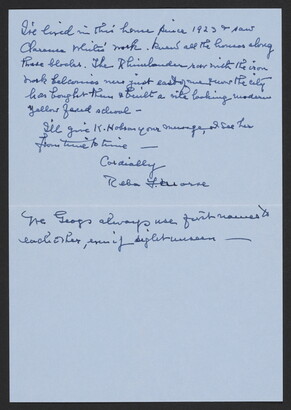 I've lived in this house since 1923 & saw
Clarence White's work. Knew all the houses along
those blocks. The Rhinelander row with the iron
work balconies were just east of me & now the city
has bought them & built a vile looking modern
yellow faced school —
I'll give K. Hobson your message, I see her
from time to time —
Cordially
Reba
We Geogs always use first names to
each other, even if sight unseen —